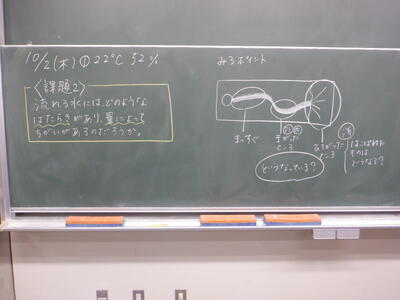 10/2(木) 22℃ 52%
〈課題2〉
流れる水には、どのような
はたらきがあり、量によって
ちがいがあるのだろうか。
みるポイント
まっすぐ
まがった
ところ
ひろがった
ところ
はこばれた
ものは
どうなる?
どうなっている?